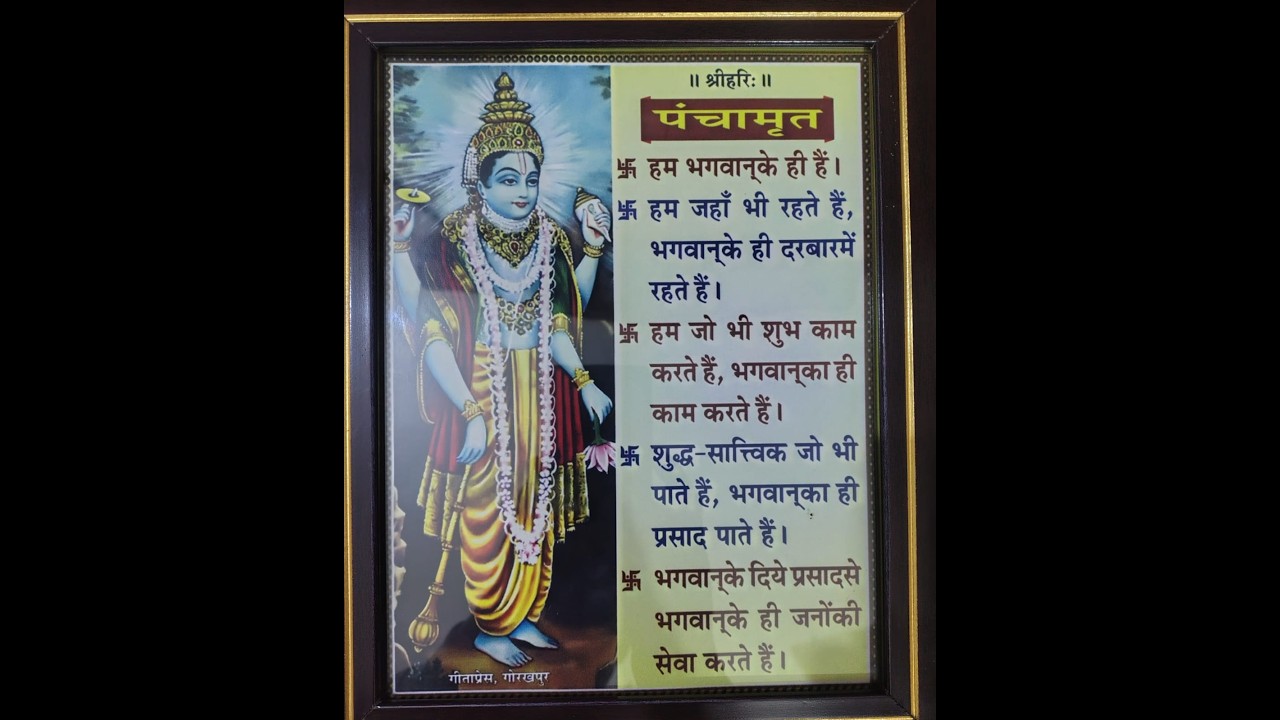 ॥ श्रीहरिः ॥
पंचामृत
卐 हम भगवान्‌के ही हैं।
卐 हम जहाँ भी रहते हैं,
भगवान्‌के ही दरबारमें
रहते हैं।
卐 हम जो भी शुभ काम
करते हैं, भगवान्‌का ही
काम करते हैं।
卐 शुद्ध-सात्त्विक जो भी
पाते हैं, भगवान्‌का ही
प्रसाद पाते हैं।
卐 भगवान्‌के दिये प्रसादसे
भगवान्‌के ही जनोंकी
सेवा करते हैं।
गीताप्रेस, गोरखपुर